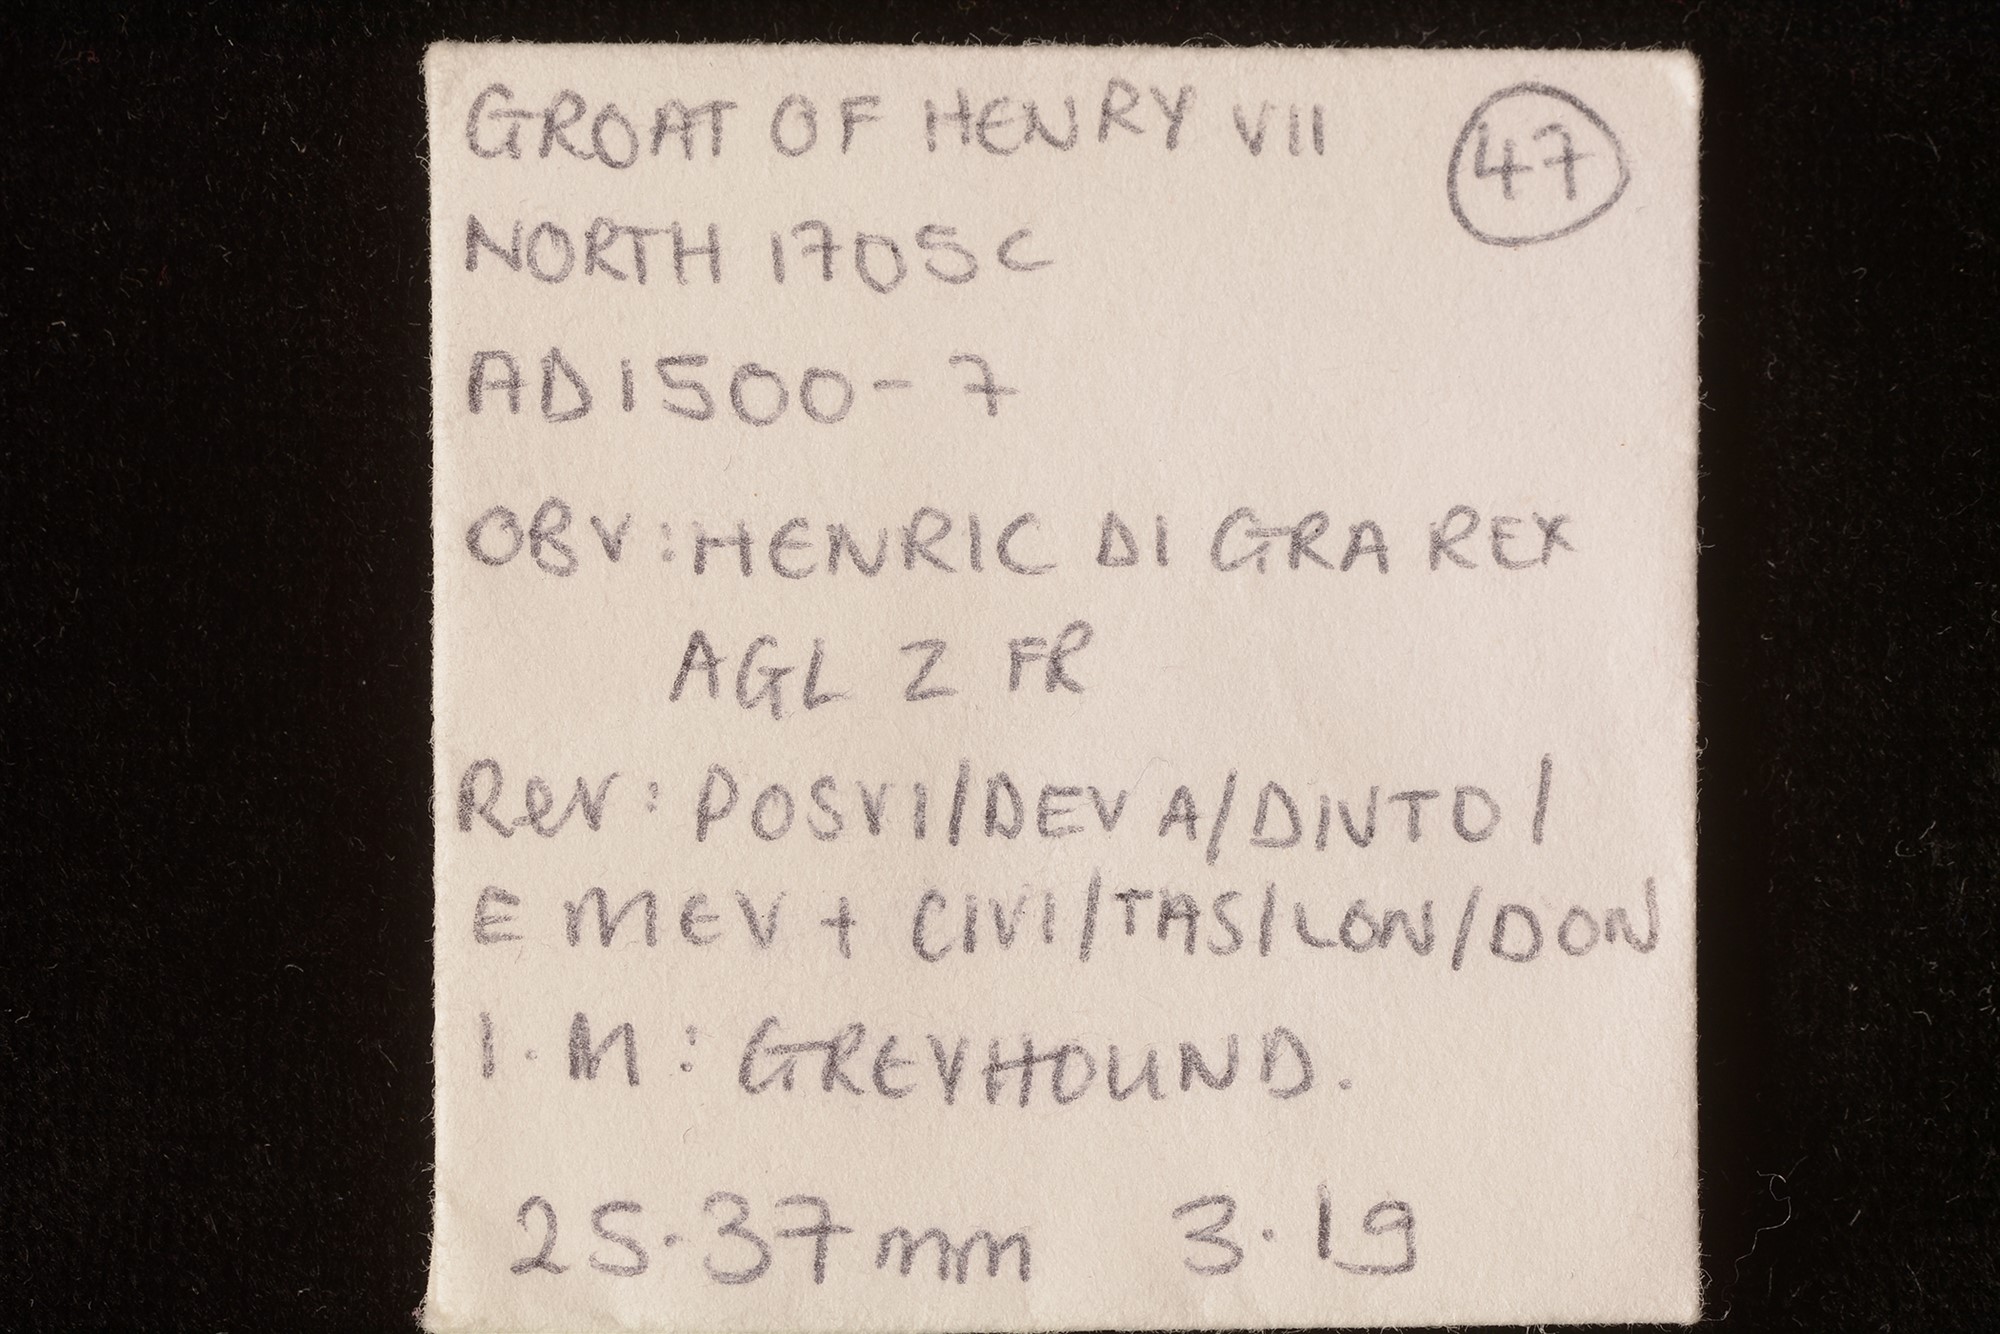 GROAT OF HENRY VII
47
NORTH 1705C
AD1500-7
OBV: HENRIC DI GRA REX
AGL Z FR
Rev: POSVI/DEV A/DIVTO/
E MEV + CIVI/TAS/LON/DON
I.M: GREYHOUND.
25.37mm 3.19